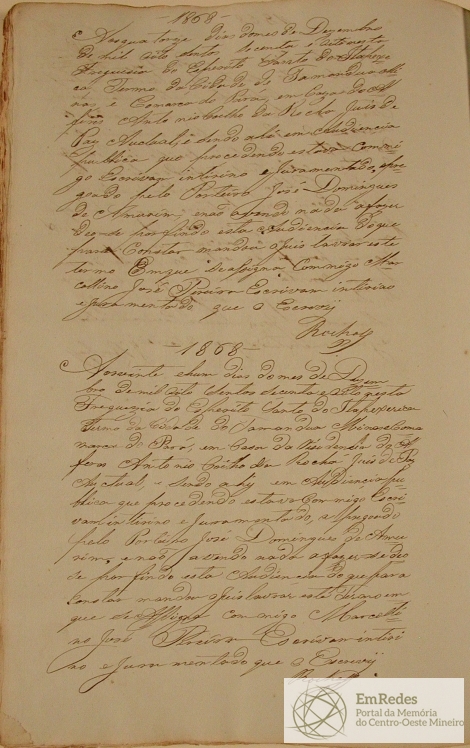 -1868-
Aos quatorze dias do mes de Dezembro
de mil oito centos secenta e oito nesta
Freguesia do Espirito Santo do Itapece-
rica, Termo da Cidade do Tamandua Mi-
nas e Comarca do Pará, em Caza do Al-
feres Antonio Coelho da Rocha Juis de
Paz Auctual, e sendo ahi em audiencia
publica que procedendo estava Commi-
go Escrivam interino e Juramentado, apre-
goado pelo Porteiro José Domingues
de Amorim, e não avendo nada a fazer
deo-se por findo esta Audiencia do que
para Constar mandou o Juis lavrar este
termo Em que se assigna Commigo Mar-
cellino José Pereira Escrivam interino
e Juramentado que o Escrevy
Rocha
-1868-
Aos vinte e hum dias do mes de Dezem-
bro de mil oito Centos secenta e oito nesta
Freguezia do Espirito Santo do Itapecerica
Termo da Cidade do Tamandua Minas e Co-
marca do Pará, em Casa da Residencia do Al-
feres Antonio Coelho da Rocha Juis de Paz
Auctual, e sendo ahy em Audiencia pu-
blica que procedendo estava Commigo Escri-
vam interino e Juramentado, apregoado
pelo Porteiro José Domingues de Amo-
rim, e não avendo nada a fazer deo-
se por findo esta Audiencia do que para
Constar mandou o Juis lavrar este termo em
que se assigna commigo Marcelli-
no José Pereira Escrivam interi-
no e Juramentado que o Escrevy
EmRedes
Portal da Memória
do Centro-Oeste Mineiro